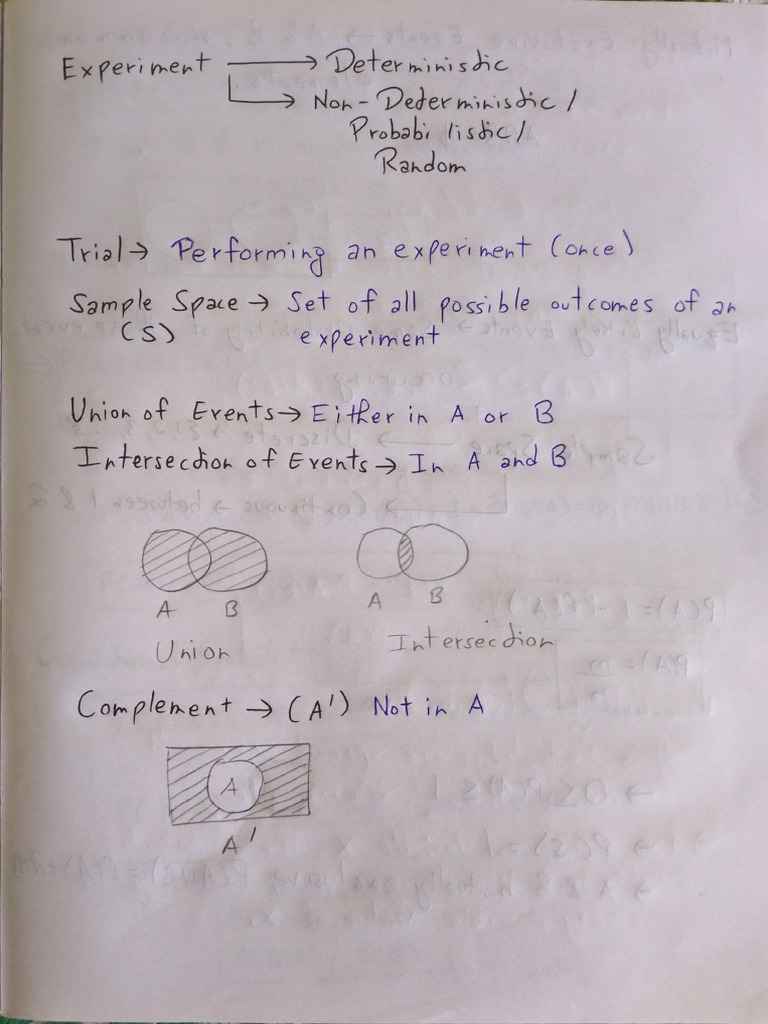 Experiment → Deterministic
→ Non-Deterministic /
Probabilistic /
Random
Trial → Performing an experiment (once)
Sample Space → Set of all possible outcomes of an
(S) experiment
Union of Events → Either in A or B
Intersection of Events → In A and B
A B A B
Union Intersection
Complement → (A') Not in A
A
A'